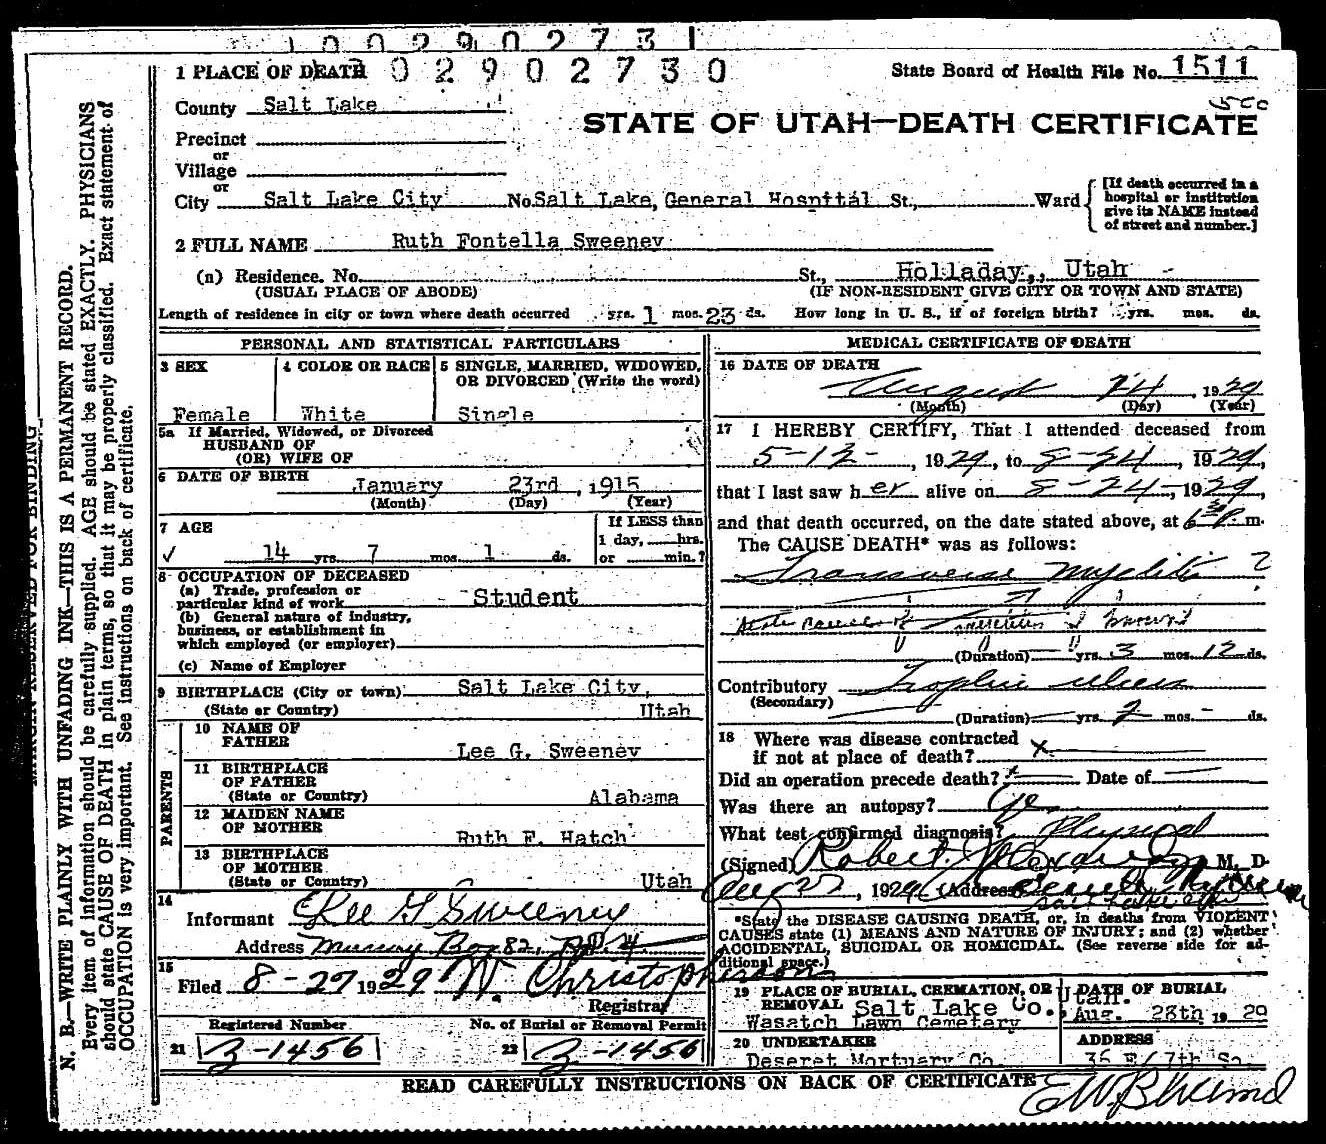 1 PLACE OF DEATH 0 2 9 0 2 7 3 0 State Board of Health File No. 1511
County Salt Lake
STATE OF UTAH—DEATH CERTIFICATE
Precinct
or
Village
or
City Salt Lake City No. Salt Lake, General Hospital St., Ward
[If death occurred in a
hospital or institution
give its NAME instead
of street and number.]
2 FULL NAME Ruth Fontella Sweeney
(a) Residence. No. St., Holladay,, Utah
(USUAL PLACE OF ABODE) (IF NON-RESIDENT GIVE CITY OR TOWN AND STATE)
Length of residence in city or town where death occurred yrs. 1 mos. 23 ds. How long in U. S., if of foreign birth? yrs. mos. ds.
PERSONAL AND STATISTICAL PARTICULARS
3 SEX 4 COLOR OR RACE 5 SINGLE, MARRIED, WIDOWED,
OR DIVORCED (Write the word)
Female White Single
5a If Married, Widowed, or Divorced
HUSBAND OF
(OR) WIFE OF
6 DATE OF BIRTH January 23rd, 1915
(Month) (Day) (Year)
7 AGE If LESS than
1 day, hrs.
14 yrs. 7 mos. 1 ds. or min.?
8 OCCUPATION OF DECEASED
(a) Trade, profession or
particular kind of work Student
(b) General nature of industry,
business, or establishment in
which employed (or employer)
(c) Name of Employer
9 BIRTHPLACE (City or town) Salt Lake City,
(State or Country) Utah
PARENTS
10 NAME OF
FATHER Lee G. Sweeney
11 BIRTHPLACE
OF FATHER
(State or Country) Alabama
12 MAIDEN NAME
OF MOTHER Ruth F. Hatch
13 BIRTHPLACE
OF MOTHER
(State or Country) Utah
14
Informant Lee G Sweeney
Address Murray Box 82, R.D. 4
15
Filed 8-27 1929 W. Christopherson
Registrar
Registered Number No. of Burial or Removal Permit
21 3-1456 22 3-1456
MEDICAL CERTIFICATE OF DEATH
16 DATE OF DEATH
August 24, 1929
(Month) (Day) (Year)
17 I HEREBY CERTIFY, That I attended deceased from
5-12-, 1929, to 8-24, 1929,
that I last saw her alive on 8-24-, 1929,
and that death occurred, on the date stated above, at 6 30 P. m.
The CAUSE DEATH* was as follows:
Transverse Myelitis ?
(Duration) yrs. 3 mos. 12 ds.
Contributory Trophic ulcers
(Secondary)
(Duration) yrs. 2 mos. - ds.
18 Where was disease contracted
if not at place of death? x
Did an operation precede death? x Date of
Was there an autopsy? Yes
What test confirmed diagnosis? Physical
(Signed) Robert Alexander M. D.
Aug 27, 1929 (Address)
*State the DISEASE CAUSING DEATH, or, in deaths from VIOLENT
CAUSES state (1) MEANS AND NATURE OF INJURY; and (2) whether
ACCIDENTAL, SUICIDAL OR HOMICIDAL. (See reverse side for ad-
ditional space.)
19 PLACE OF BURIAL, CREMATION, OR DATE OF BURIAL
REMOVAL Salt Lake Co., Utah.
Wasatch Lawn Cemetery Aug. 28th 19 29
20 UNDERTAKER ADDRESS
Deseret Mortuary Co. 36 E/ 7th So.
READ CAREFULLY INSTRUCTIONS ON BACK OF CERTIFICATE
MARGIN RESERVED FOR BINDING
N. B.—WRITE PLAINLY WITH UNFADING INK—THIS IS A PERMANENT RECORD.
Every item of information should be carefully supplied. AGE should be stated EXACTLY. PHYSICIANS
should state CAUSE OF DEATH in plain terms, so that it may be properly classified. Exact statement of
OCCUPATION is very important. See instructions on back of certificate.